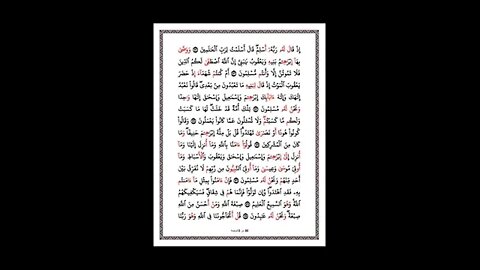 إِذْ قَالَ لَهُۥ رَبُّهُۥٓ أَسْلِمْ قَالَ أَسْلَمْتُ لِرَبِّ ٱلْعَٰلَمِينَ ۝ وَوَصَّىٰ
بِهَآ إِبْرَٰهِـۧمُ بَنِيهِ وَيَعْقُوبُ يَٰبَنِىَّ إِنَّ ٱللَّهَ ٱصْطَفَىٰ لَكُمُ ٱلدِّينَ
فَلَا تَمُوتُنَّ إِلَّا وَأَنتُم مُّسْلِمُونَ ۝ أَمْ كُنتُمْ شُهَدَآءَ إِذْ حَضَرَ
يَعْقُوبَ ٱلْمَوْتُ إِذْ قَالَ لِبَنِيهِ مَا تَعْبُدُونَ مِنۢ بَعْدِى قَالُوا۟ نَعْبُدُ
إِلَٰهَكَ وَإِلَٰهَ ءَابَآئِكَ إِبْرَٰهِـۧمَ وَإِسْمَٰعِيلَ وَإِسْحَٰقَ إِلَٰهًا وَٰحِدًا
وَنَحْنُ لَهُۥ مُسْلِمُونَ ۝ تِلْكَ أُمَّةٌ قَدْ خَلَتْ لَهَا مَا كَسَبَتْ
وَلَكُم مَّا كَسَبْتُمْ وَلَا تُسْـَٔلُونَ عَمَّا كَانُوا۟ يَعْمَلُونَ ۝ وَقَالُوا۟
كُونُوا۟ هُودًا أَوْ نَصَٰرَىٰ تَهْتَدُوا۟ قُلْ بَلْ مِلَّةَ إِبْرَٰهِـۧمَ حَنِيفًا وَمَا
كَانَ مِنَ ٱلْمُشْرِكِينَ ۝ قُولُوٓا۟ ءَامَنَّا بِٱللَّهِ وَمَآ أُنزِلَ إِلَيْنَا وَمَآ
أُنزِلَ إِلَىٰٓ إِبْرَٰهِـۧمَ وَإِسْمَٰعِيلَ وَإِسْحَٰقَ وَيَعْقُوبَ وَٱلْأَسْبَاطِ وَمَآ
أُوتِىَ مُوسَىٰ وَعِيسَىٰ وَمَآ أُوتِىَ ٱلنَّبِيُّونَ مِن رَّبِّهِمْ لَا نُفَرِّقُ بَيْنَ
أَحَدٍ مِّنْهُمْ وَنَحْنُ لَهُۥ مُسْلِمُونَ ۝ فَإِنْ ءَامَنُوا۟ بِمِثْلِ مَآ ءَامَنتُم
بِهِۦ فَقَدِ ٱهْتَدَوا۟ وَّإِن تَوَلَّوْا۟ فَإِنَّمَا هُمْ فِى شِقَاقٍ فَسَيَكْفِيكَهُمُ
ٱللَّهُ وَهُوَ ٱلسَّمِيعُ ٱلْعَلِيمُ ۝ صِبْغَةَ ٱللَّهِ وَمَنْ أَحْسَنُ مِنَ ٱللَّهِ
صِبْغَةً وَنَحْنُ لَهُۥ عَٰبِدُونَ ۝ قُلْ أَتُحَآجُّونَنَا فِى ٱللَّهِ وَهُوَ رَبُّنَا